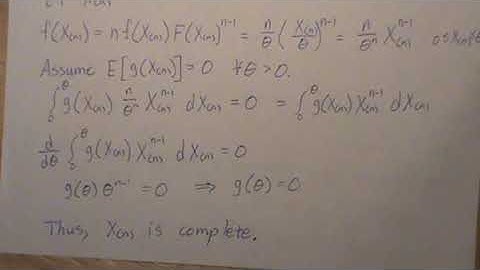 f(X(n)) = n f(X(n)) F(X(n))^{n-1} = n/θ (X(n)/θ)^{n-1} = n/θ^n X(n)^{n-1} 0≤X(n)≤θ
Assume E[g(X(n))] = 0 ∀θ>0.
∫_0^θ g(X(n)) n/θ^n X(n)^{n-1} dX(n) = 0 = ∫_0^θ g(X(n)) X(n)^{n-1} dX(n)
d/dθ ∫_0^θ g(X(n)) X(n)^{n-1} dX(n) = 0
g(θ) θ^{n-1} = 0 ⟹ g(θ) = 0
Thus, X(n) is complete.